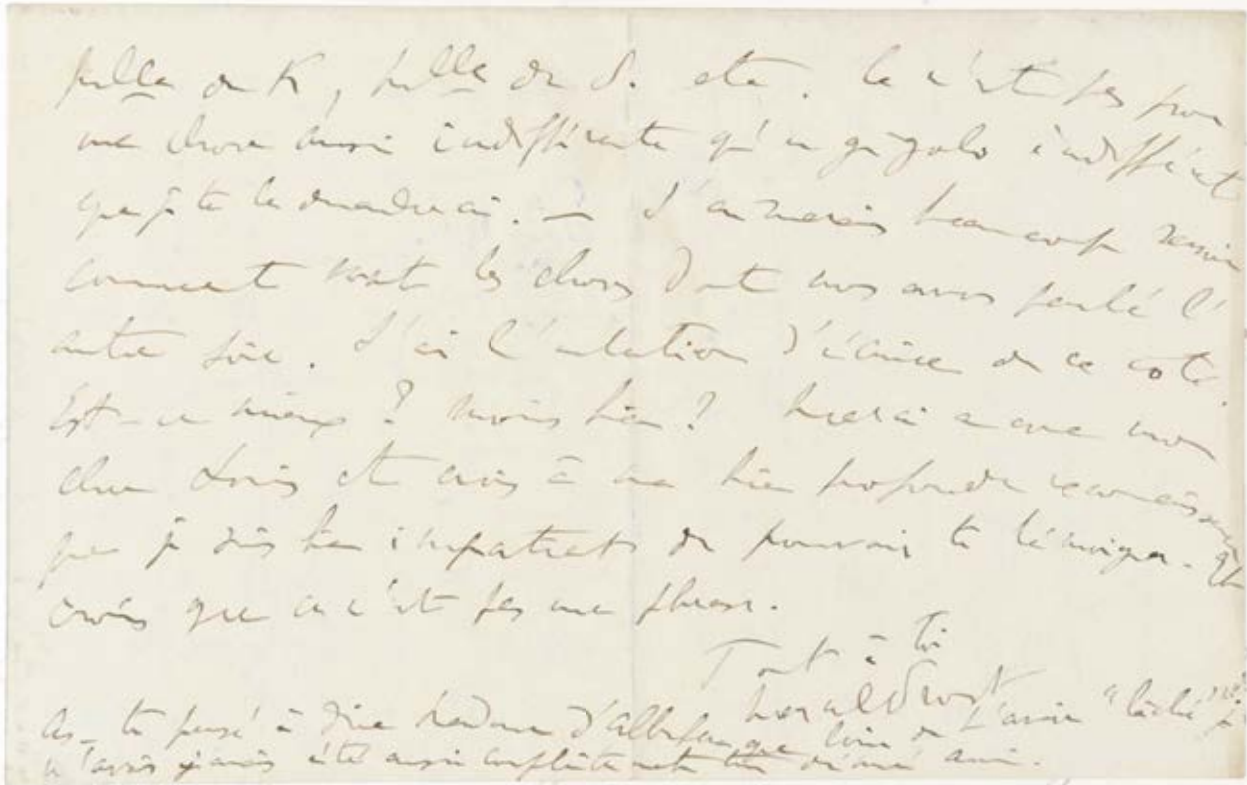 de K, de S. etc. Ce n'est pas pour
une chose aussi indifférente qu'un gigolo indifférent
que je te le demanderai. — J'aimerais beaucoup savoir
comment vont les choses dont nous avons parlé l'
autre soir. J'ai l' d'écrire de ce coté.
Est-ce mieux ? moins bien ? Merci encore mon
cher Louis et crois à ma bien profonde reconnaissance
que je suis bien impatient de pouvoir te témoigner. Et
crois que ce n'est pas une phrase.
Tout à toi
Marcel Proust
As-tu pensé à dire Madame d'Albufera que loin de t'avoir "lâché" je
n'avais jamais été aussi complètement ton ami.